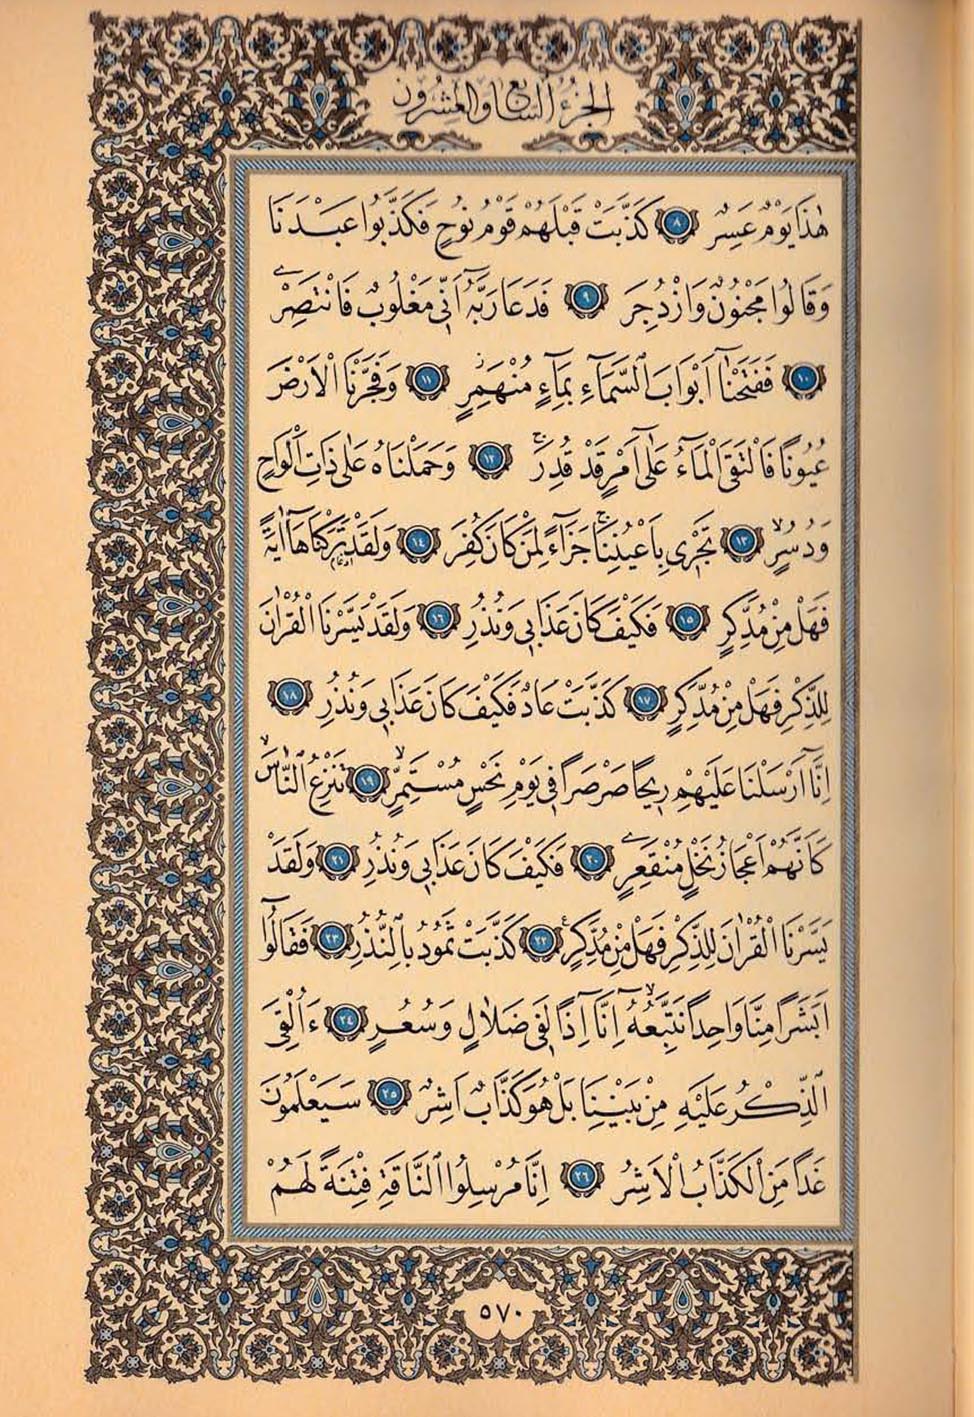 الجزء السابع والعشرون
هٰذَا يَوْمٌ عَسِرٌ ﴿٨﴾ كَذَّبَتْ قَبْلَهُمْ قَوْمُ نُوحٍ فَكَذَّبُوا عَبْدَنَا
وَقَالُوا مَجْنُونٌ وَازْدُجِرَ ﴿٩﴾ فَدَعَا رَبَّهُٓ اَنّ۪ي مَغْلُوبٌ فَانْتَصِرْ
﴿١٠﴾ فَفَتَحْنَٓا اَبْوَابَ السَّمَٓاءِ بِمَٓاءٍ مُنْهَمِرٍ ﴿١١﴾ وَفَجَّرْنَا الْاَرْضَ
عُيُونًا فَالْتَقَى الْمَٓاءُ عَلٰٓى اَمْرٍ قَدْ قُدِرَ ﴿١٢﴾ وَحَمَلْنَاهُ عَلٰى ذَاتِ اَلْوَاحٍ
وَدُسُرٍ ﴿١٣﴾ تَجْر۪ي بِاَعْيُنِنَا جَزَٓاءً لِمَنْ كَانَ كُفِرَ ﴿١٤﴾ وَلَقَدْ تَرَكْنَاهَٓا اٰيَةً
فَهَلْ مِنْ مُدَّكِرٍ ﴿١٥﴾ فَكَيْفَ كَانَ عَذَاب۪ي وَنُذُرِ ﴿١٦﴾ وَلَقَدْ يَسَّرْنَا الْقُرْاٰنَ
لِلذِّكْرِ فَهَلْ مِنْ مُدَّكِرٍ ﴿١٧﴾ كَذَّبَتْ عَادٌ فَكَيْفَ كَانَ عَذَاب۪ي وَنُذُرِ ﴿١٨﴾
اِنَّٓا اَرْسَلْنَا عَلَيْهِمْ ر۪يحًا صَرْصَرًا ف۪ي يَوْمِ نَحْسٍ مُسْتَمِرٍّ ﴿١٩﴾ تَنْزِعُ النَّاسَ
كَاَنَّهُمْ اَعْجَازُ نَخْلٍ مُنْقَعِرٍ ﴿٢٠﴾ فَكَيْفَ كَانَ عَذَاب۪ي وَنُذُرِ ﴿٢١﴾ وَلَقَدْ
يَسَّرْنَا الْقُرْاٰنَ لِلذِّكْرِ فَهَلْ مِنْ مُدَّكِرٍ ﴿٢٢﴾ كَذَّبَتْ ثَمُودُ بِالنُّذُرِ ﴿٢٣﴾ فَقَالُٓوا
اَبَشَرًا مِنَّا وَاحِدًا نَتَّبِعُهُٓ اِنَّٓا اِذًا لَف۪ي ضَلَالٍ وَسُعُرٍ ﴿٢٤﴾ ءَاُلْقِيَ
الذِّكْرُ عَلَيْهِ مِنْ بَيْنِنَا بَلْ هُوَ كَذَّابٌ اَشِرٌ ﴿٢٥﴾ سَيَعْلَمُونَ
غَدًا مَنِ الْكَذَّابُ الْاَشِرُ ﴿٢٦﴾ اِنَّا مُرْسِلُوا النَّاقَةِ فِتْنَةً لَهُمْ
٥٧٠